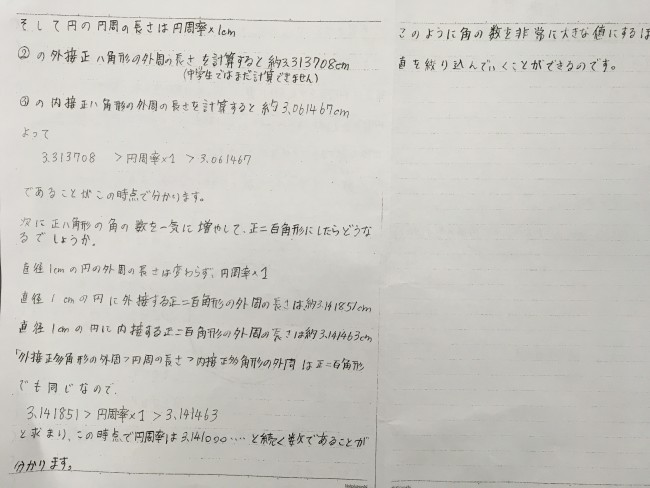 そして円の円周の長さは円周率×1cm
②の外接正八角形の外周の長さを計算すると約3.313708cm
(中学生ではまだ計算できません)
③の内接正八角形の外周の長さを計算すると約3.061467cm
よって
3.313708 > 円周率×1 > 3.061467
であることがこの時点で分かります。
次に正八角形の角の数を一気に増やして、正二百角形にしたらどうな
るでしょうか。
直径1cmの円の外周の長さは変わらず、円周率×1
直径1cmの円に外接する正二百角形の外周の長さは約3.141851cm
直径1cmの円に内接する正二百角形の外周の長さは約3.141463cm
「外接正多角形の外周>円周の長さ>内接正多角形の外周は正二百角形
でも同じなので、
3.141851 > 円周率×1 > 3.141463
と求まり、この時点で円周率は3.141○○○‥‥と続く数であることが
分かります。
このように角の数を非常に大きな値にすれば
直を絞り込んでいくことができるのです。